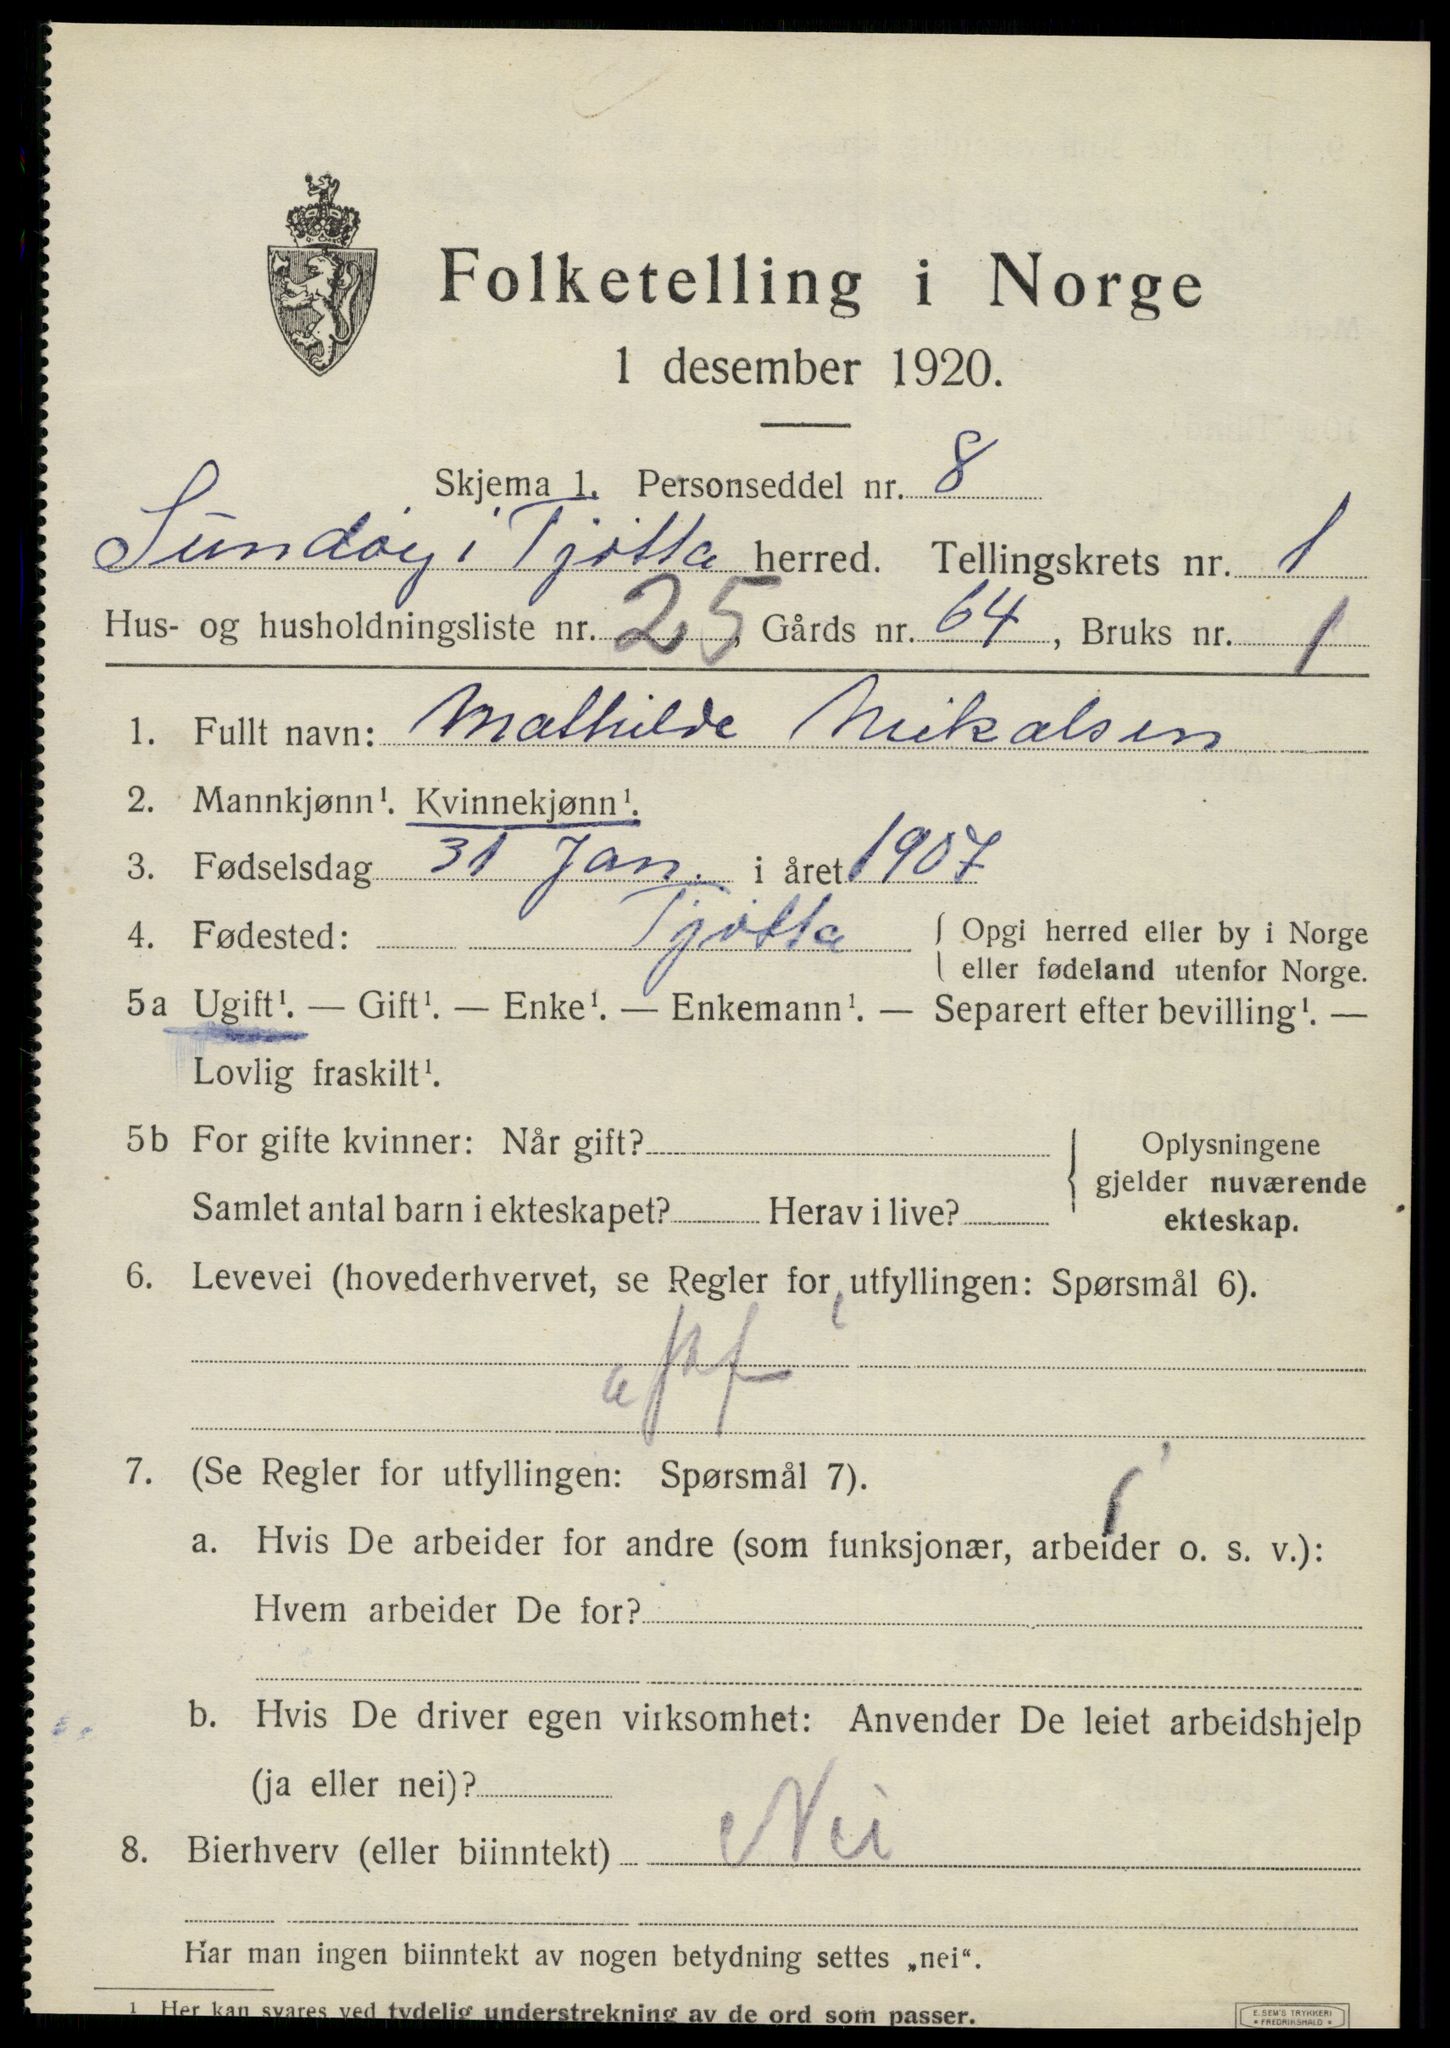 Folketelling i Norge
1 desember 1920.
Skjema 1. Personseddel nr. 8
Sundøy i Tjøtta herred. Tellingskrets nr. 1
Hus- og husholdningsliste nr. 25, Gårds nr. 64, Bruks nr. 1
1. Fullt navn: Mathilde Mikalsen
2. Mannkjønn¹. Kvinnekjønn¹.
3. Fødselsdag 31 Jan. i året 1907
4. Fødested: Tjøtta { Opgi herred eller by i Norge
eller fødeland utenfor Norge.
5a Ugift¹. — Gift¹. — Enke¹. — Enkemann¹. — Separert efter bevilling¹. —
Lovlig fraskilt¹.
5b For gifte kvinner: Når gift?
Samlet antal barn i ekteskapet? Herav i live?
{ Oplysningene
gjelder nuværende
ekteskap.
6. Levevei (hovederhvervet, se Regler for utfyllingen: Spørsmål 6).
7. (Se Regler for utfyllingen: Spørsmål 7).
a. Hvis De arbeider for andre (som funksjonær, arbeider o. s. v.):
Hvem arbeider De for?
b. Hvis De driver egen virksomhet: Anvender De leiet arbeidshjelp
(ja eller nei)?
8. Bierhverv (eller biinntekt) Nei
Har man ingen biinntekt av nogen betydning settes „nei“.
1 Her kan svares ved tydelig understrekning av de ord som passer.
E. SEM'S TRYKKERI
* FREDRIKSHALD *